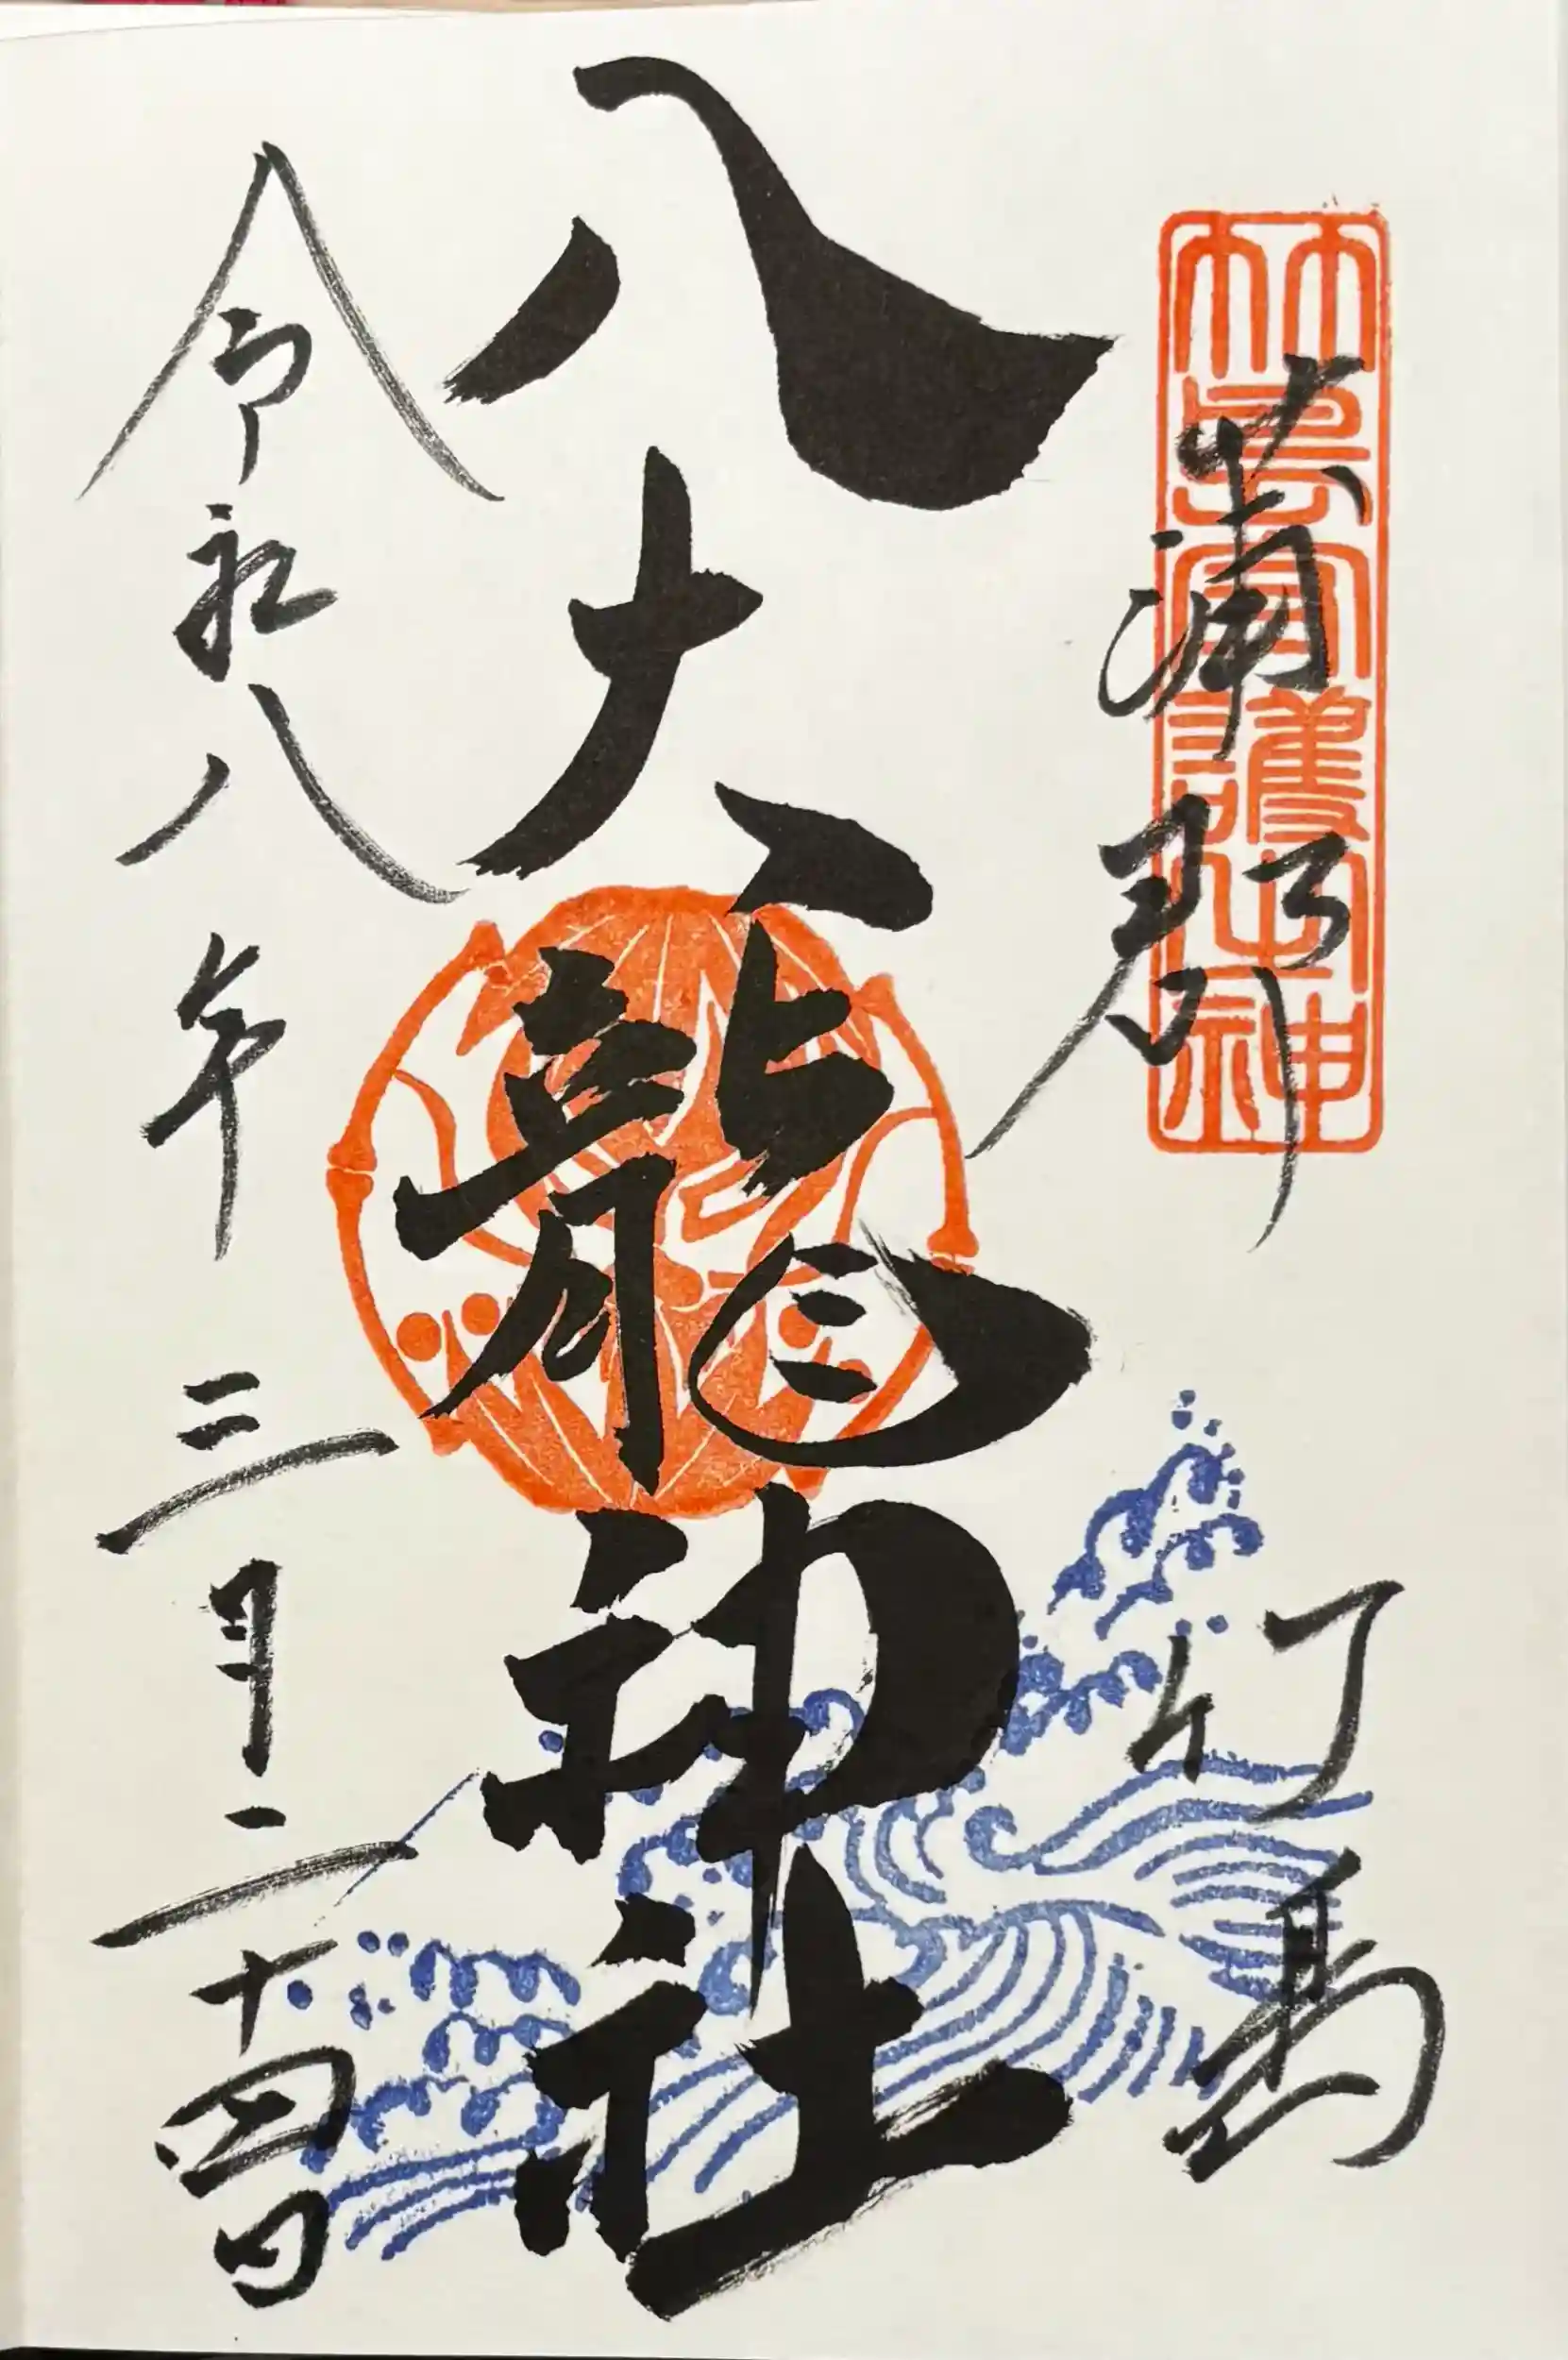 竹島守護之神
蒲郡 竹島
八大龍神社
令和八年三月二十四日